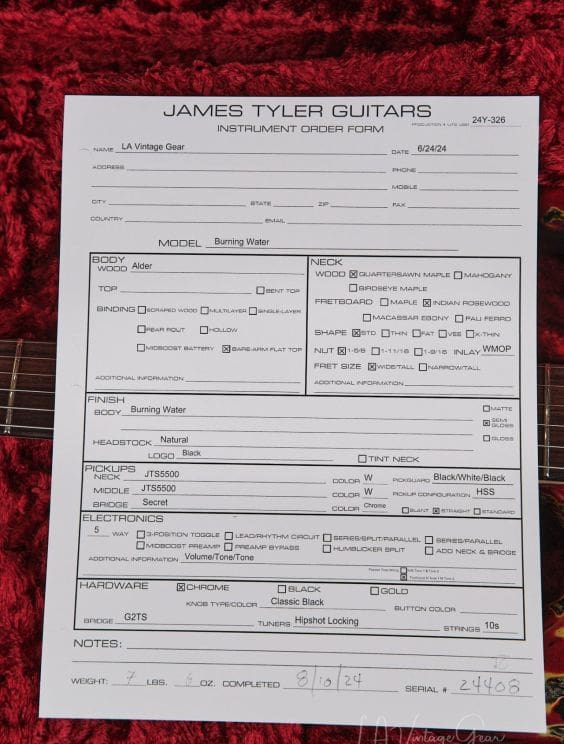 JAMES TYLER GUITARS
INSTRUMENT ORDER FORM
24Y-326
NAME LA Vintage Gear DATE 6/24/24
ADDRESS PHONE
MOBILE
CITY STATE ZIP FAX
COUNTRY EMAIL
MODEL Burning Water
BODY
WOOD Alder
TOP BENT TOP
BINDING SCRAPED WOOD MULTILAYER SINGLE-LAYER
REAR ROUT HOLLOW
MIDBOOST BATTERY BARE-ARM FLAT TOP
ADDITIONAL INFORMATION
NECK
WOOD QUARTERSAWN MAPLE MAHOGANY
BIRDSEYE MAPLE
FRETBOARD MAPLE INDIAN ROSEWOOD
MACASSAR EBONY PAU FERRO
SHAPE STD THIN FAT VEE X-THIN
NUT 1-5/8 1-11/16 1-9/16 INLAY WMOP
FRET SIZE WIDE/TALL NARROW/TALL
ADDITIONAL INFORMATION
FINISH
BODY Burning Water
MATTE
SEMI GLOSS
GLOSS
HEADSTOCK Natural
LOGO Black TINT NECK
PICKUPS
NECK JTS5500 COLOR W PICKGUARD Black/White/Black
MIDDLE JTS5500 COLOR W PICKUP CONFIGURATION HSS
BRIDGE Secret COLOR Chrome SLANT STRAIGHT STANDARD
ELECTRONICS
5 WAY 3-POSITION TOGGLE LEAD/RHYTHM CIRCUIT SERIES/SPLIT/PARALLEL SERIES/PARALLEL
MIDBOOST PREAMP PREAMP BYPASS HUMBUCKER SPLIT ADD NECK & BRIDGE
ADDITIONAL INFORMATION Volume/Tone/Tone
HARDWARE CHROME BLACK GOLD
KNOB TYPE/COLOR Classic Black BUTTON COLOR
BRIDGE G2TS TUNERS Hipshot Locking STRINGS 10s
NOTES:
WEIGHT: 7 LBS. 6 OZ. COMPLETED 8/10/24 SERIAL # 24408
LA Vintage Gear